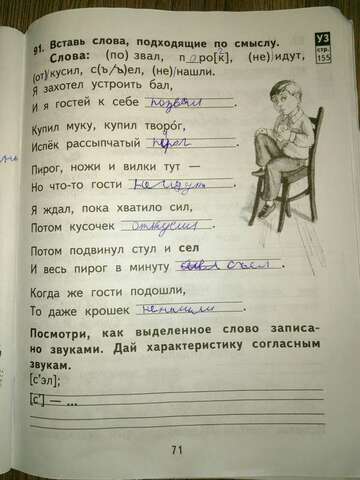 91. Вставь слова, подходящие по смыслу.
УЗ
стр.
155
Слова: (по) звал, п а ро[к], (не) идут,
(от)/кусил, с(ъ/ъ)ел, (не)/нашли.
Я захотел устроить бал,
И я гостей к себе позвал.
Купил муку, купил творо́г,
Испёк рассыпчатый пирог.
Пирог, ножи и вилки тут —
Но что-то гости не идут.
Я ждал, пока хватило сил,
Потом кусочек откусил.
Потом подвинул стул и сел
И весь пирог в минуту съел.
Когда же гости подошли,
То даже крошек ненашли.
Посмотри, как выделенное слово записа-
но звуками. Дай характеристику согласным
звукам.
[с'эл];
[с'] — ...
71